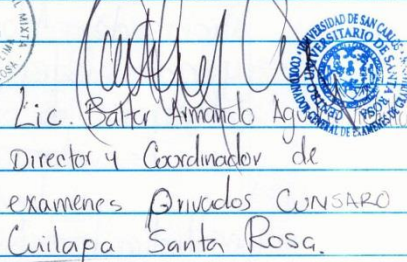 MIXTA
UNIVERSIDAD DE SAN CARLOS
UNIVERSITARIO DE SANTA ROSA
Lic. Balter Armando
Director y Coordinador de
examenes Privados CUNSARO
Cuilapa Santa Rosa.